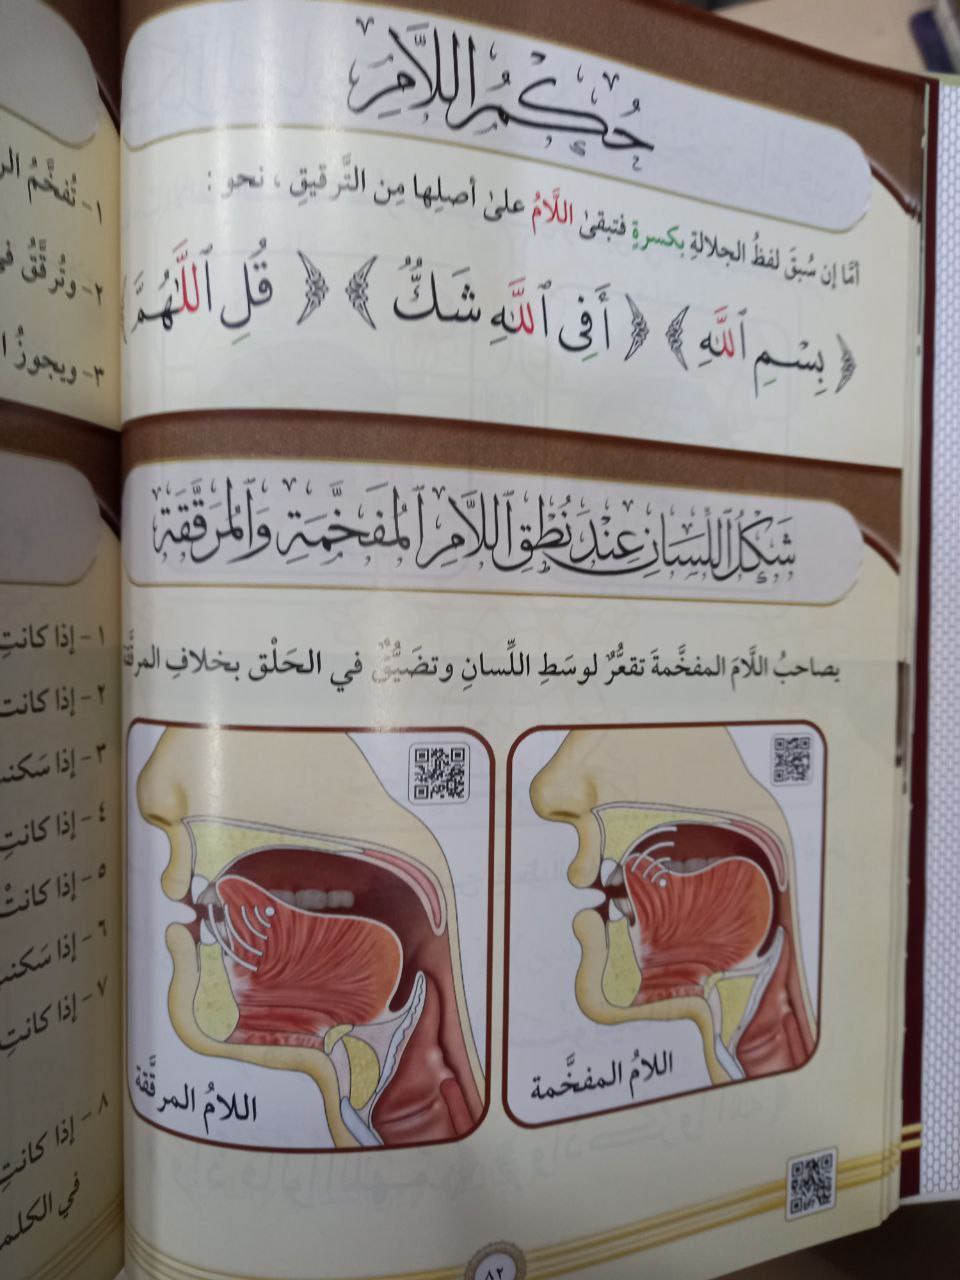 حُكْمُ اللَّامِ
أمَّا إن سُبقَ لفظُ الجلالةِ بكسرةٍ فتبقىٰ اللَّامُ علىٰ أصلِها مِن التَّرقيقِ ، نحو :
﴿ بِسْمِ ٱللَّهِ ﴾ ﴿ أَفِى ٱللَّهِ شَكٌّ ﴾ ﴿ قُلِ ٱللَّهُمَّ
شَكْلُ اللِّسَانِ عِنْدَ نُطْقِ اللَّامِ المُفَخَّمَةِ وَالمُرَقَّقَةِ
يصاحبُ اللَّامَ المفخَّمةَ تقعُّرٌ لوسَطِ اللِّسانِ وتضَيُّقٌ في الحَلْق بخلافِ
اللامُ المفخَّمة
اللامُ المرقَّقة
٨٢
١- تُفخَّمُ
٢- وتُرقَّقُ
٣- ويجوزُ
١- إذا كانتِ
٢- إذا كانت
٣- إذا سَكنت
٤- إذا كانتِ
٥- إذا كانتْ
٦- إذا سَكنت
٧- إذا كانتِ
٨- إذا كانتِ
في